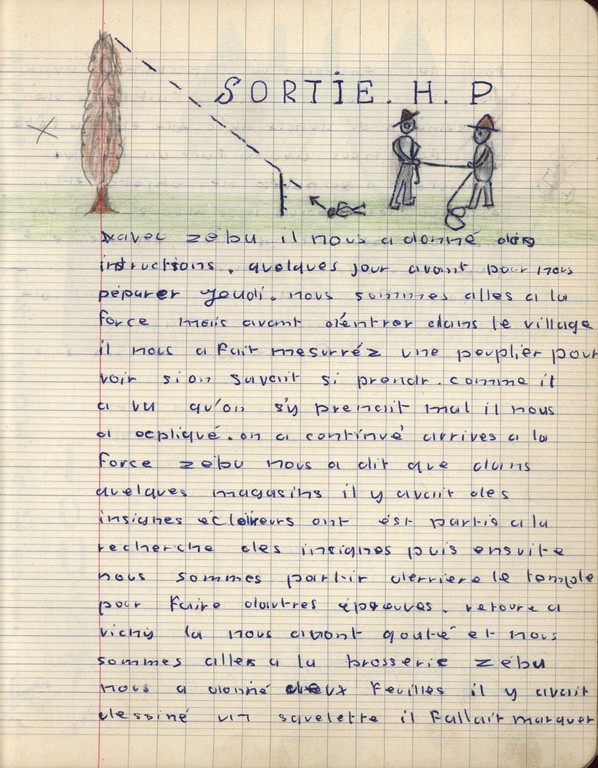 SORTIE. H. P
avec zebu il nous a donné des
instructions. quelques jour avant pour nous
péparer Jeudi. nous sommes alles a la
force mais avant d'éntrer dans le village
il nous a fait mesurréz une peuplier pour
voir si on savent si prendr. comme il
a vu qu'on s'y prenait mal il nous
a ecpliqué. on a continué arrives a la
force zebu nous a dit que dans
quelques magasins il y avait des
insignes écloireurs ont ést partis a la
recherche des insignes puis ensuite
nous sommes partir derriere le temple
pour faire dautres épreuves. retoure a
vichy la nous avont gouté et nous
sommes alles a la brosserie zebu
nous a donné deux feuilles il y avait
dessiné un squelette il fallait marquer